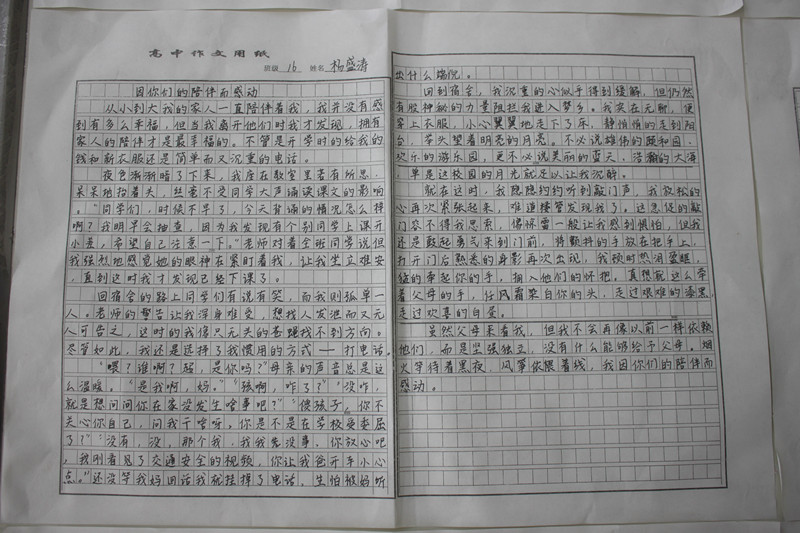 高中作文用纸
班级 16 姓名 杨盛涛
因你们的陪伴而感动
从小到大我的家人一直陪伴着我，我并没有感
到有多么幸福，但当我离开他们时我才发现，拥有
家人的陪伴才是最幸福的。不管是开学时的给我的
钱和新衣服还是简单而又沉重的电话。
夜色渐渐暗了下来，我座在教室里若有所思，
呆呆地抬着头，丝毫不受同学大声诵读课文的影响
。“同学们，时候不早了，今天背诵的情况怎么样
啊？我明早会抽查，因为我发现有个别同学上课开
小差，希望自己注意一下。”老师对着全班同学说但
我强烈地感觉她的眼神在紧盯着我，让我坐立难安
，直到这时我才发现已经下课了。
回宿舍的路上同学们有说有笑，而我则孤单一
人。老师的警告让我浑身难受，想找人发泄而又无
人可告之，这时的我像只无头的苍蝇找不到方向。
尽管如此，我还是选择了我惯用的方式——打电话。
“喂？谁啊？强，是你吗？”母亲的声音总是这
么温暖。“是我啊，妈。”“强啊，咋了？”“没咋，
就是想问问你在家没发生啥事吧？”“傻孩子，你不
关心你自己，问我干啥呀，你是不是在学校受委屈
了？”“没有，没，那个我，我我先没事，你放心吧
，我刚看见了交通安全的视频，你让我爸开车小心
点。”还没等我妈回话我就挂掉了电话。生怕被妈听
出什么端倪。
回到宿舍，我沉重的心似乎得到缓解，但仍然
有股神秘的力量阻拦我进入梦乡。我实在无聊，便
穿上衣服，小心翼翼地走下了床，静悄悄的走到阳
台，举头望着明亮的月亮。不必说雄伟的颐和园，
欢乐的游乐园，更不必说美丽的蓝天，浩瀚的大海
，单是这校园的月光就足以让我沉醉。
就在这时，我隐隐约约听到敲门声，我放松的
心再次紧张起来，难道接管发现我了。这急促的敲
门容不得我思索，像惊雷一般让我感到惧怕，但我
还是鼓起勇气来到门前，将颤抖的手放在把手上，
打开门后熟悉的身影再次出现，我顿时热泪盈眶，
猛的牵起你的手，拥入他们的怀抱。真想就这么牵
着父母的手，任风霜染白你的头，走过艰难的漆黑，
走过欢喜的白昼。
虽然父母来看我，但我不会再像以前一样依赖
他们，而是坚强独立，没有什么能够给予父母。烟
火等待着黑夜，风筝依偎着线，我因你们的陪伴而
感动。